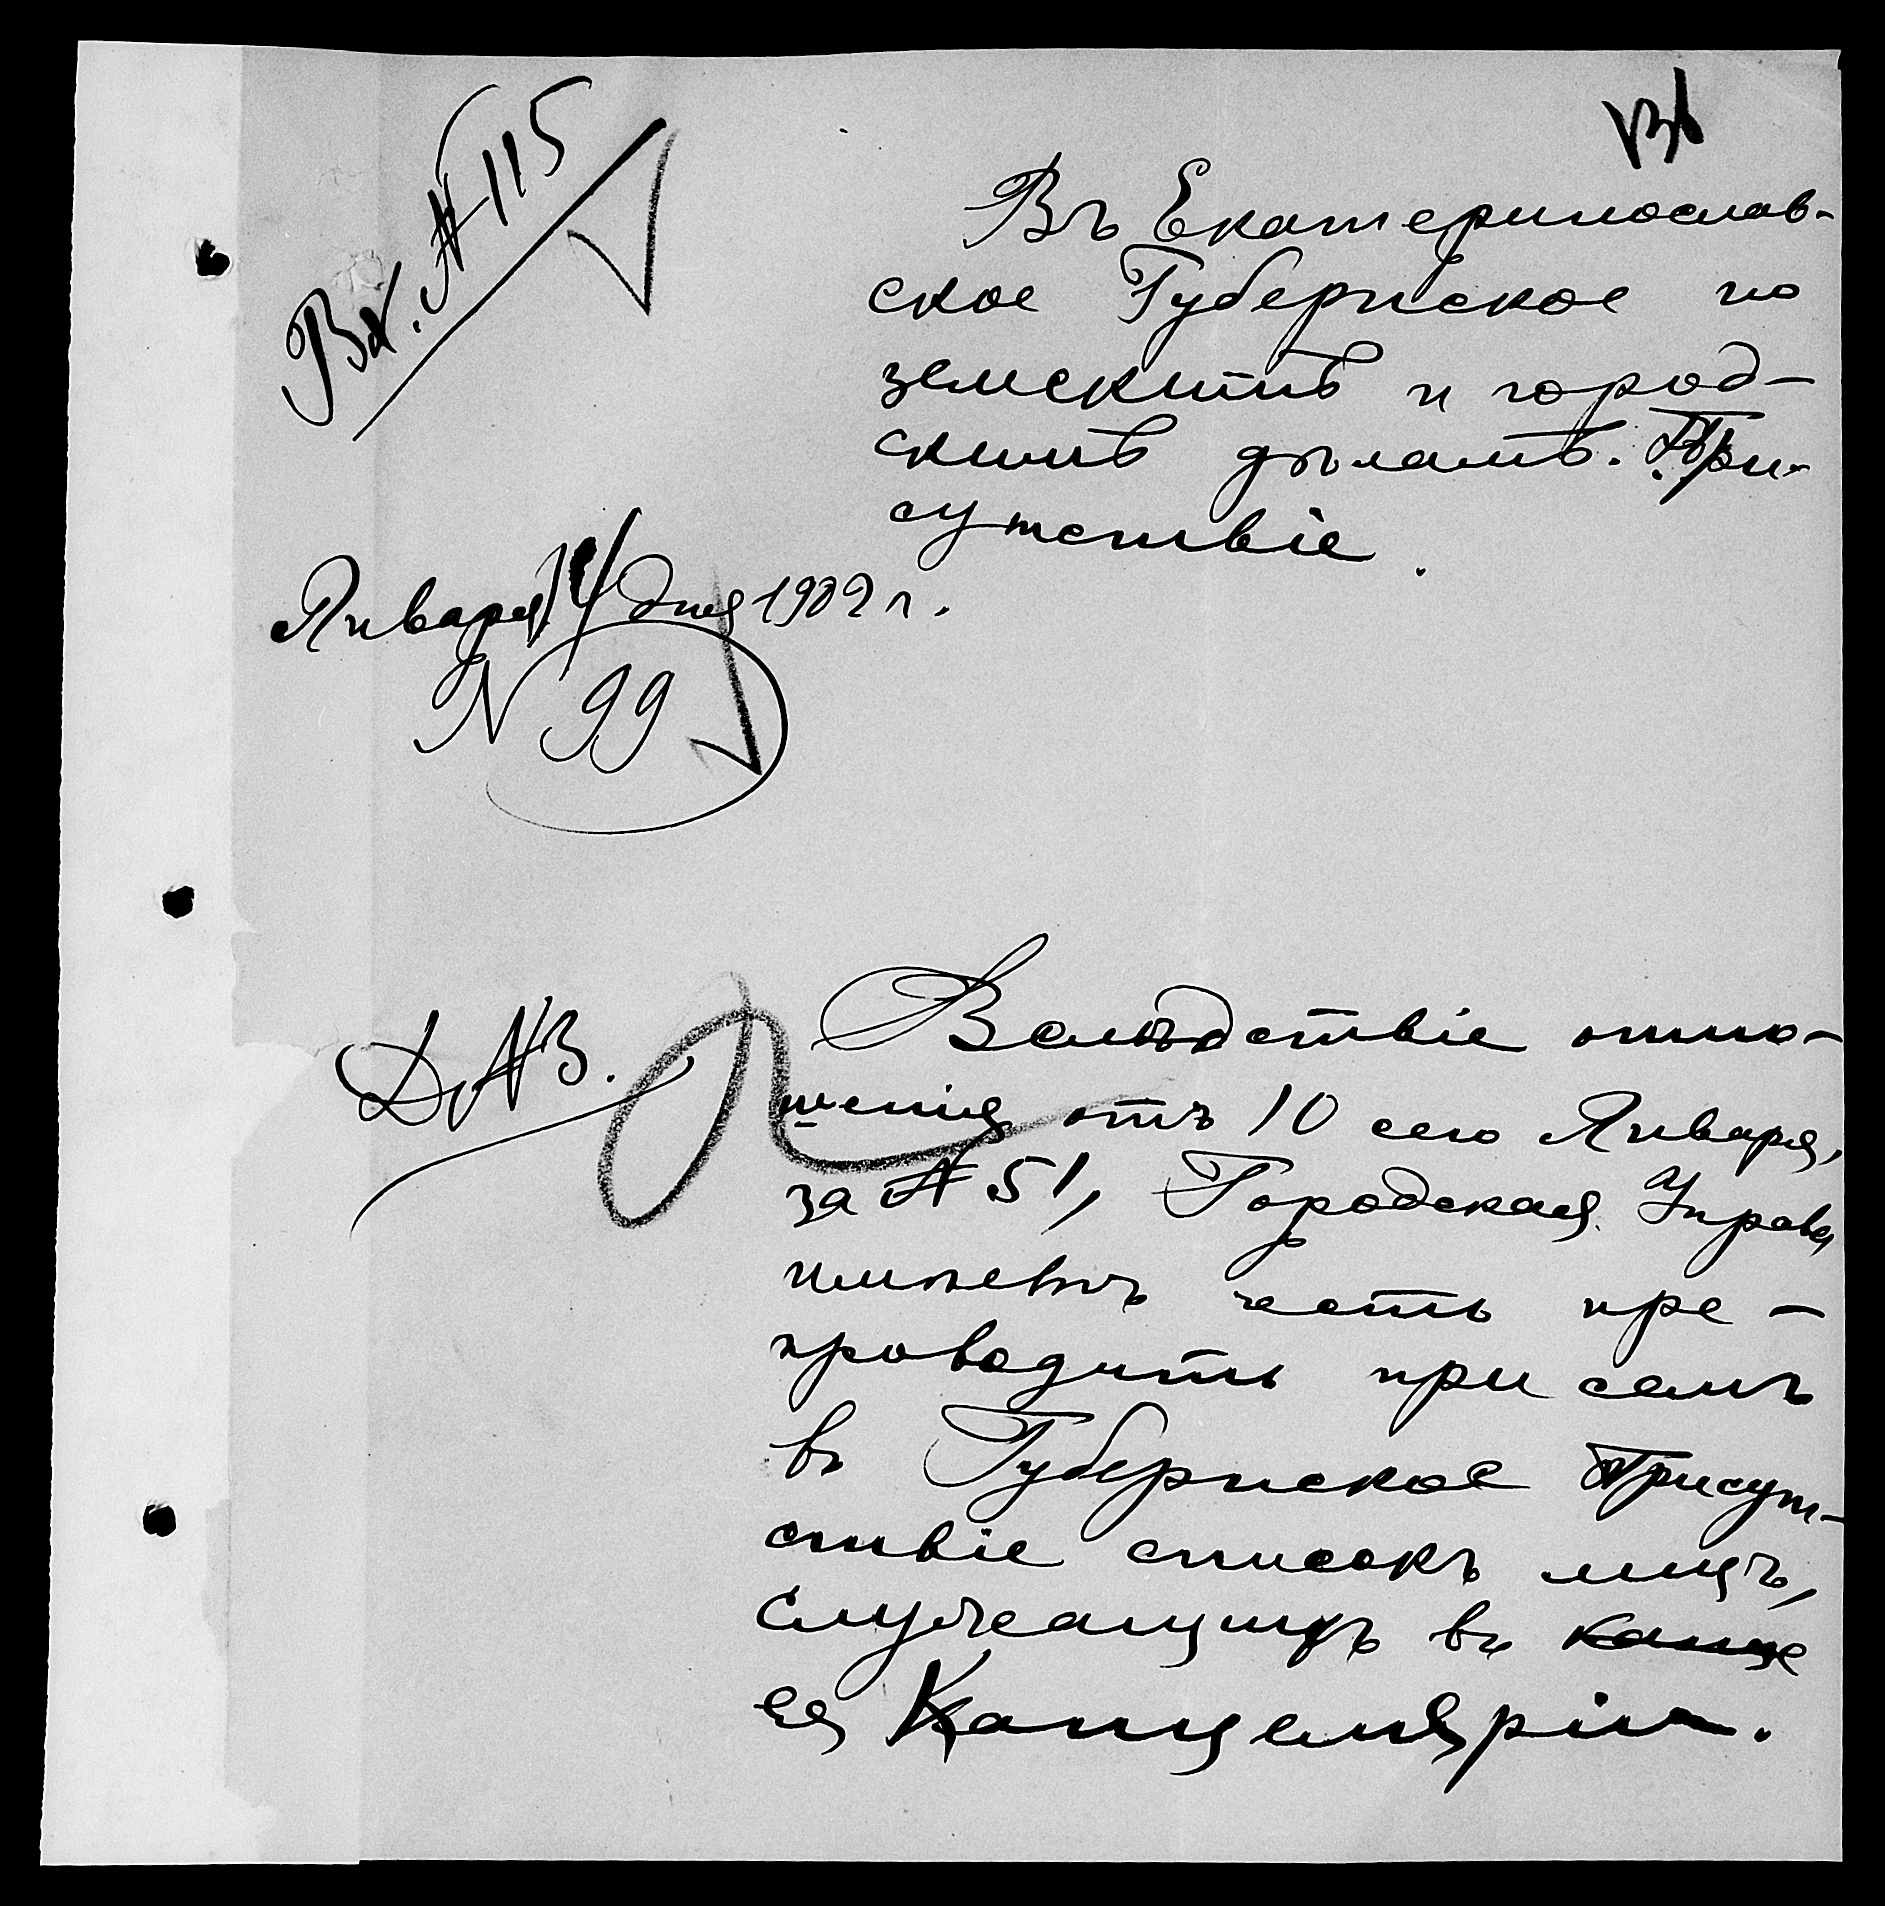 Вх. № 115
Въ Екатеринослав-
ское Губернское по
земскимъ и город-
скимъ дѣламъ При-
сутствіе.
Января 14 дня 1902 г.
N 99
Д. № 3.
Вслѣдствіе отно-
шенія отъ 10 сего Января,
за № 51, Городская Управа
имѣетъ честь пре-
проводить при семъ
въ Губернское Присут-
ствіе списокъ лицъ,
служащихъ въ канце
ея Канцеляріи.